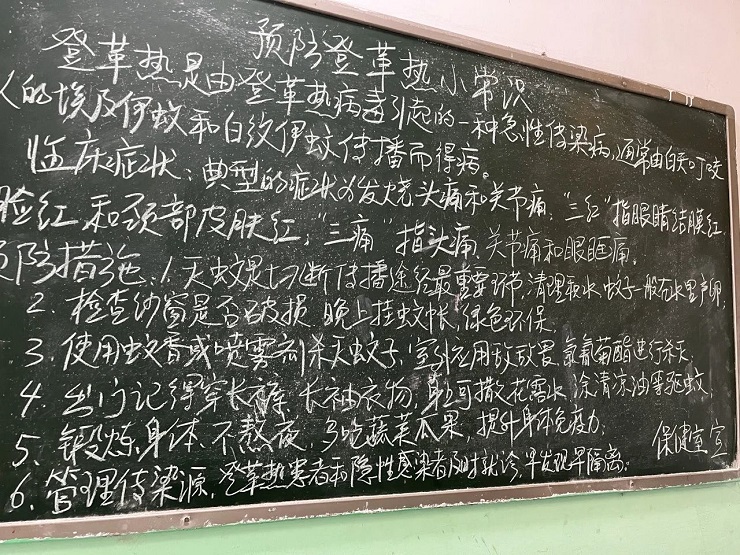 预防登革热小常识
登革热是由登革热病毒引起的一种急性传染病,通常由白天叮咬
人的埃及伊蚊和白纹伊蚊传播而得病。
临床症状:典型的症状为发烧、头痛和关节痛。“三红”指眼睛结膜红
脸红和颈部皮肤红,“三痛”指头痛、关节痛和眼眶痛。
预防措施:1.灭蚊是切断传播途径最重要环节,清理积水,蚊子一般在水里产卵,
2. 检查纱窗是否破损 晚上挂蚊帐,绿色环保.
3. 使用蚊香或喷雾剂杀灭蚊子,应用氯氰菊酯进行杀灭.
4. 出门记得穿长裤 长袖衣物,身上可撒花露水,涂清凉油等驱蚊.
5. 锻炼身体、不熬夜,多吃蔬菜瓜果,提升身体免疫力.
保健室宣
6. 管理传染源,登革热患者和隐性感染者及时就诊,早发现早隔离.